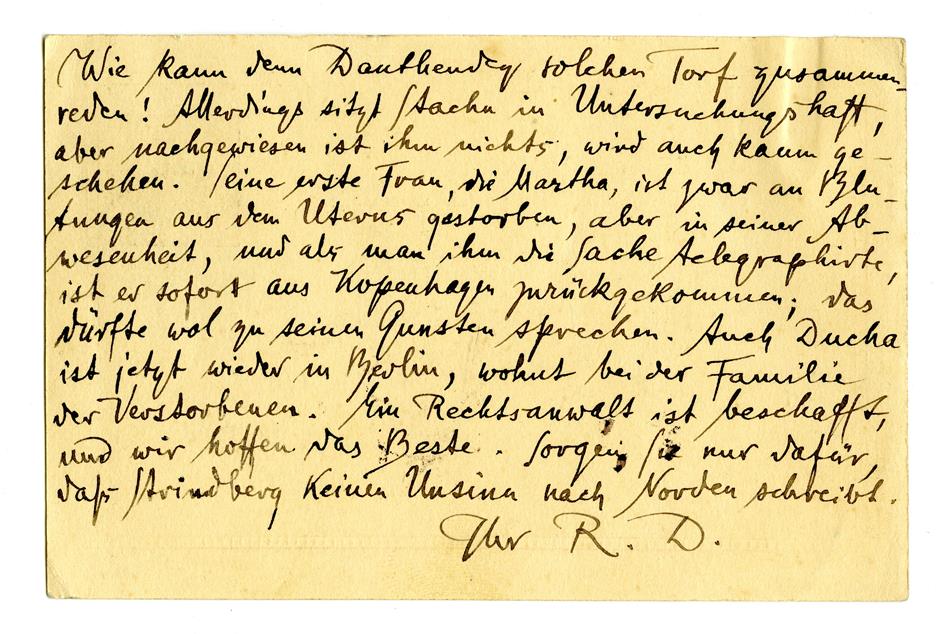 Wie kann denn Dauthendey solchen Torf zusammen-
reden! Allerdings sitzt Stachu in Untersuchungshaft,
aber nachgewiesen ist ihm nichts, wird auch kaum ge-
schehen. Seine erste Frau, die Martha, ist zwar an Blu-
tungen aus dem Uterus gestorben, aber in seiner Ab-
wesenheit, und als man ihm die Sache telegraphirte,
ist er sofort aus Kopenhagen zurückgekommen; das
dürfte wol zu seinen Gunsten sprechen. Auch Ducha
ist jetzt wieder in Berlin, wohnt bei der Familie
der Verstorbenen. Ein Rechtsanwalt ist beschafft,
und wir hoffen das Beste. Sorgen Sie nur dafür,
daß Strindberg keinen Unsinn nach Norden schreibt.
Ihr R. D.